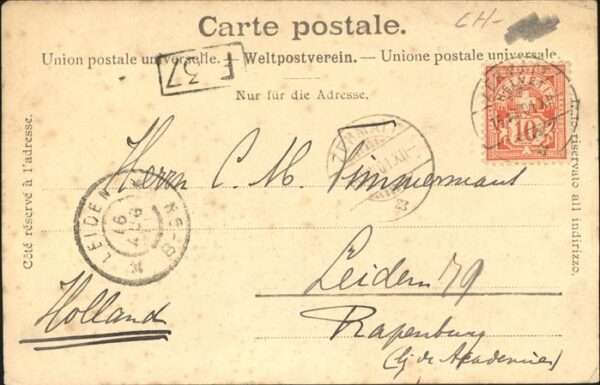 CH-
Carte postale.
Union postale universelle. — Weltpostverein. — Unione postale universale.
F 37
Nur für die Adresse.
HELVETIA
10
ZERMATT
Côté réservé à l'adresse.
Lato riservato all indirizzo.
Herrn C. M. Timmermans
LEIDEN
Leiden 79
Holland
Rapenburg
(bij de Academie)